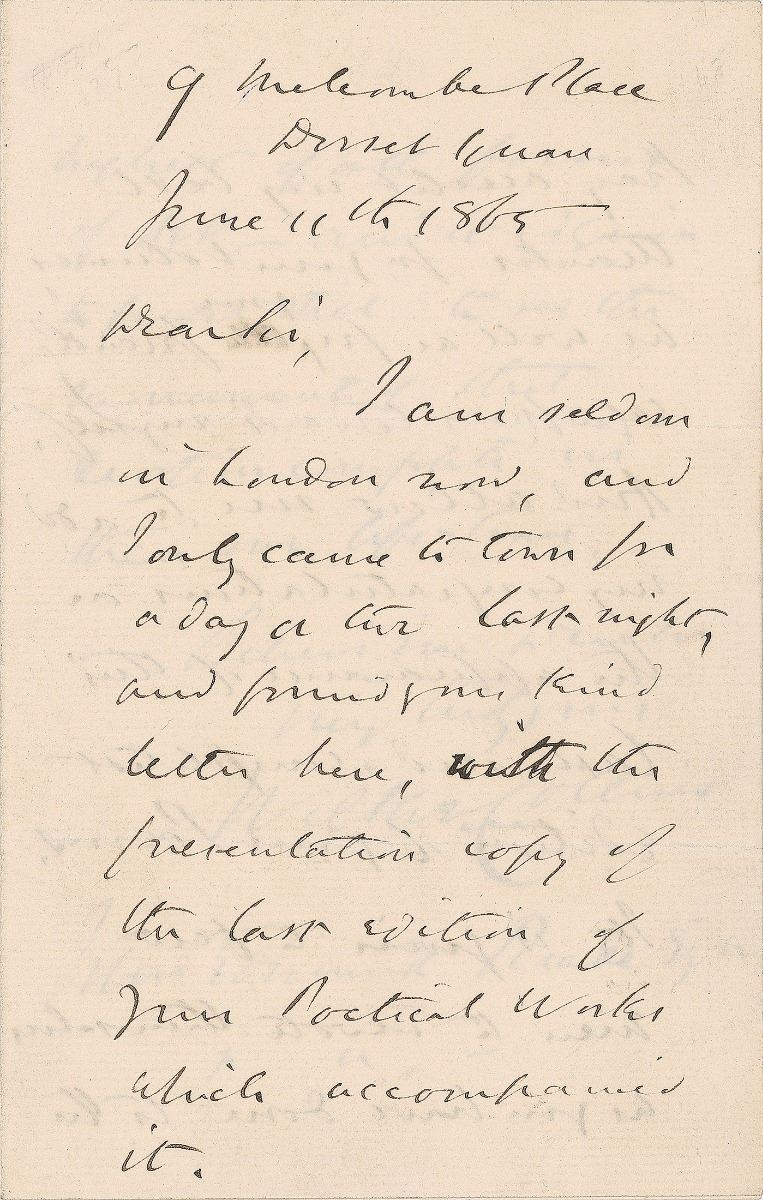 9 Melcombe Place
Dorset Square
June 11th 1865
Dear Sir,
I am seldom
in London now, and
I only came to town for
a day or two last night,
and found your kind
letter here, with the
presentation copy of
the last edition of
your Poetical Works
which accompanied
it.